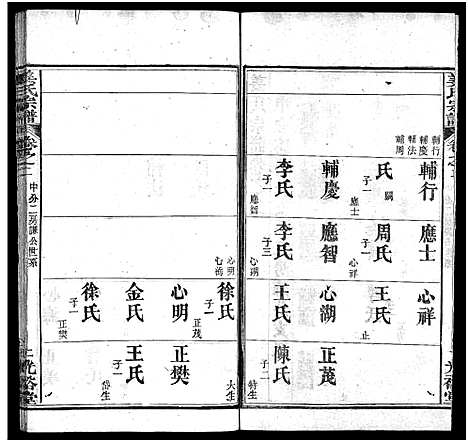 姜氏宗譜
卷之二
輔行
輔慶
輔法
輔周
輔行
氏
子一
嗣
應士
輔慶
李氏
子一
應智
應士
周氏
子一
心祥
應智
李氏
子三
心湖
心明
心滿
心祥
王氏
止
心湖
王氏
子一
正茂
徐氏
子一
正茂
心明
金氏
徐氏
子一
正樊
正茂
陳氏
子一
特生
大生
正樊
王氏
子一
岱生
光裕堂
姜氏宗譜
卷之二
中分二房謙公世系
光裕堂